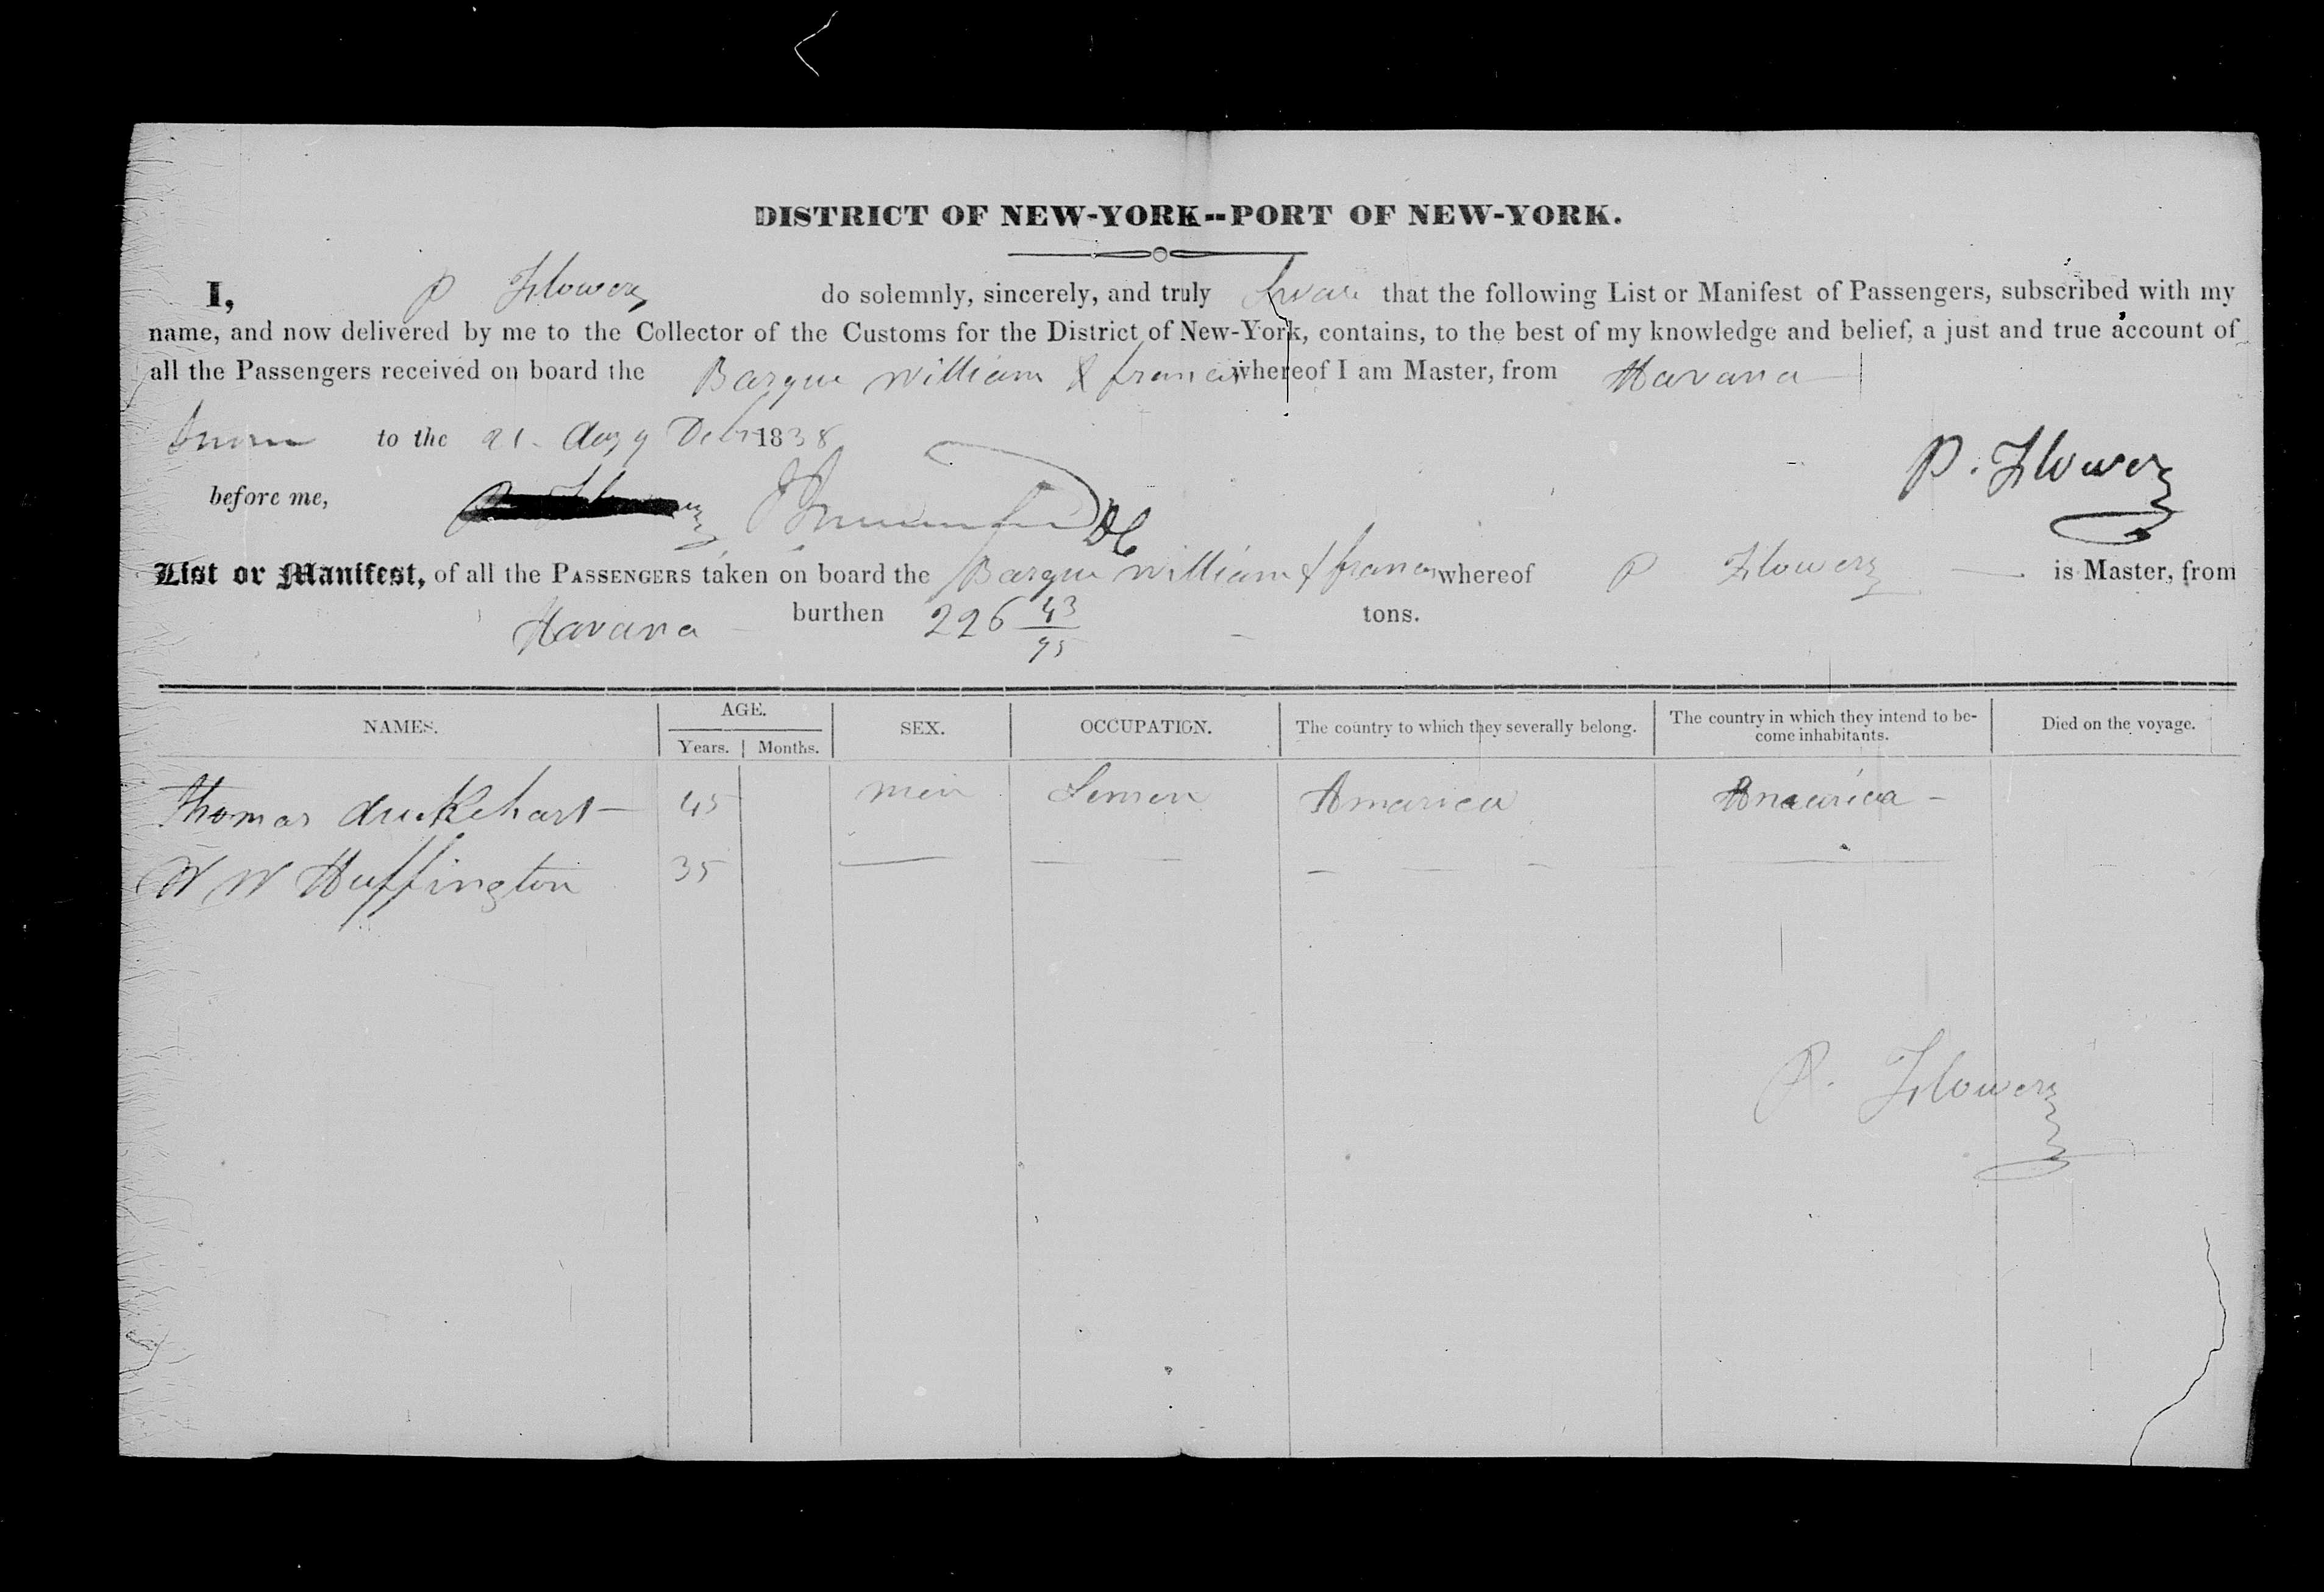 DISTRICT OF NEW-YORK--PORT OF NEW-YORK.
I, P Flowers do solemnly, sincerely, and truly Sware that the following List or Manifest of Passengers, subscribed with my
name, and now delivered by me to the Collector of the Customs for the District of New-York, contains, to the best of my knowledge and belief, a just and true account of
all the Passengers received on board the Barque William & francis whereof I am Master, from Havana
Sworn to the 21 day Debr 1838
P. Flowers
before me, DC
List or Manifest, of all the PASSENGERS taken on board the Barque William & francis whereof P Flowers is Master, from
Havana burthen 226 43/95 tons.
NAMES. AGE. Years. Months. SEX. OCCUPATION. The country to which they severally belong. The country in which they intend to be-
come inhabitants. Died on the voyage.
Thomas duckehart 45 men Semen Amarica Anaarica
W W Huffington 35
P. Flowers